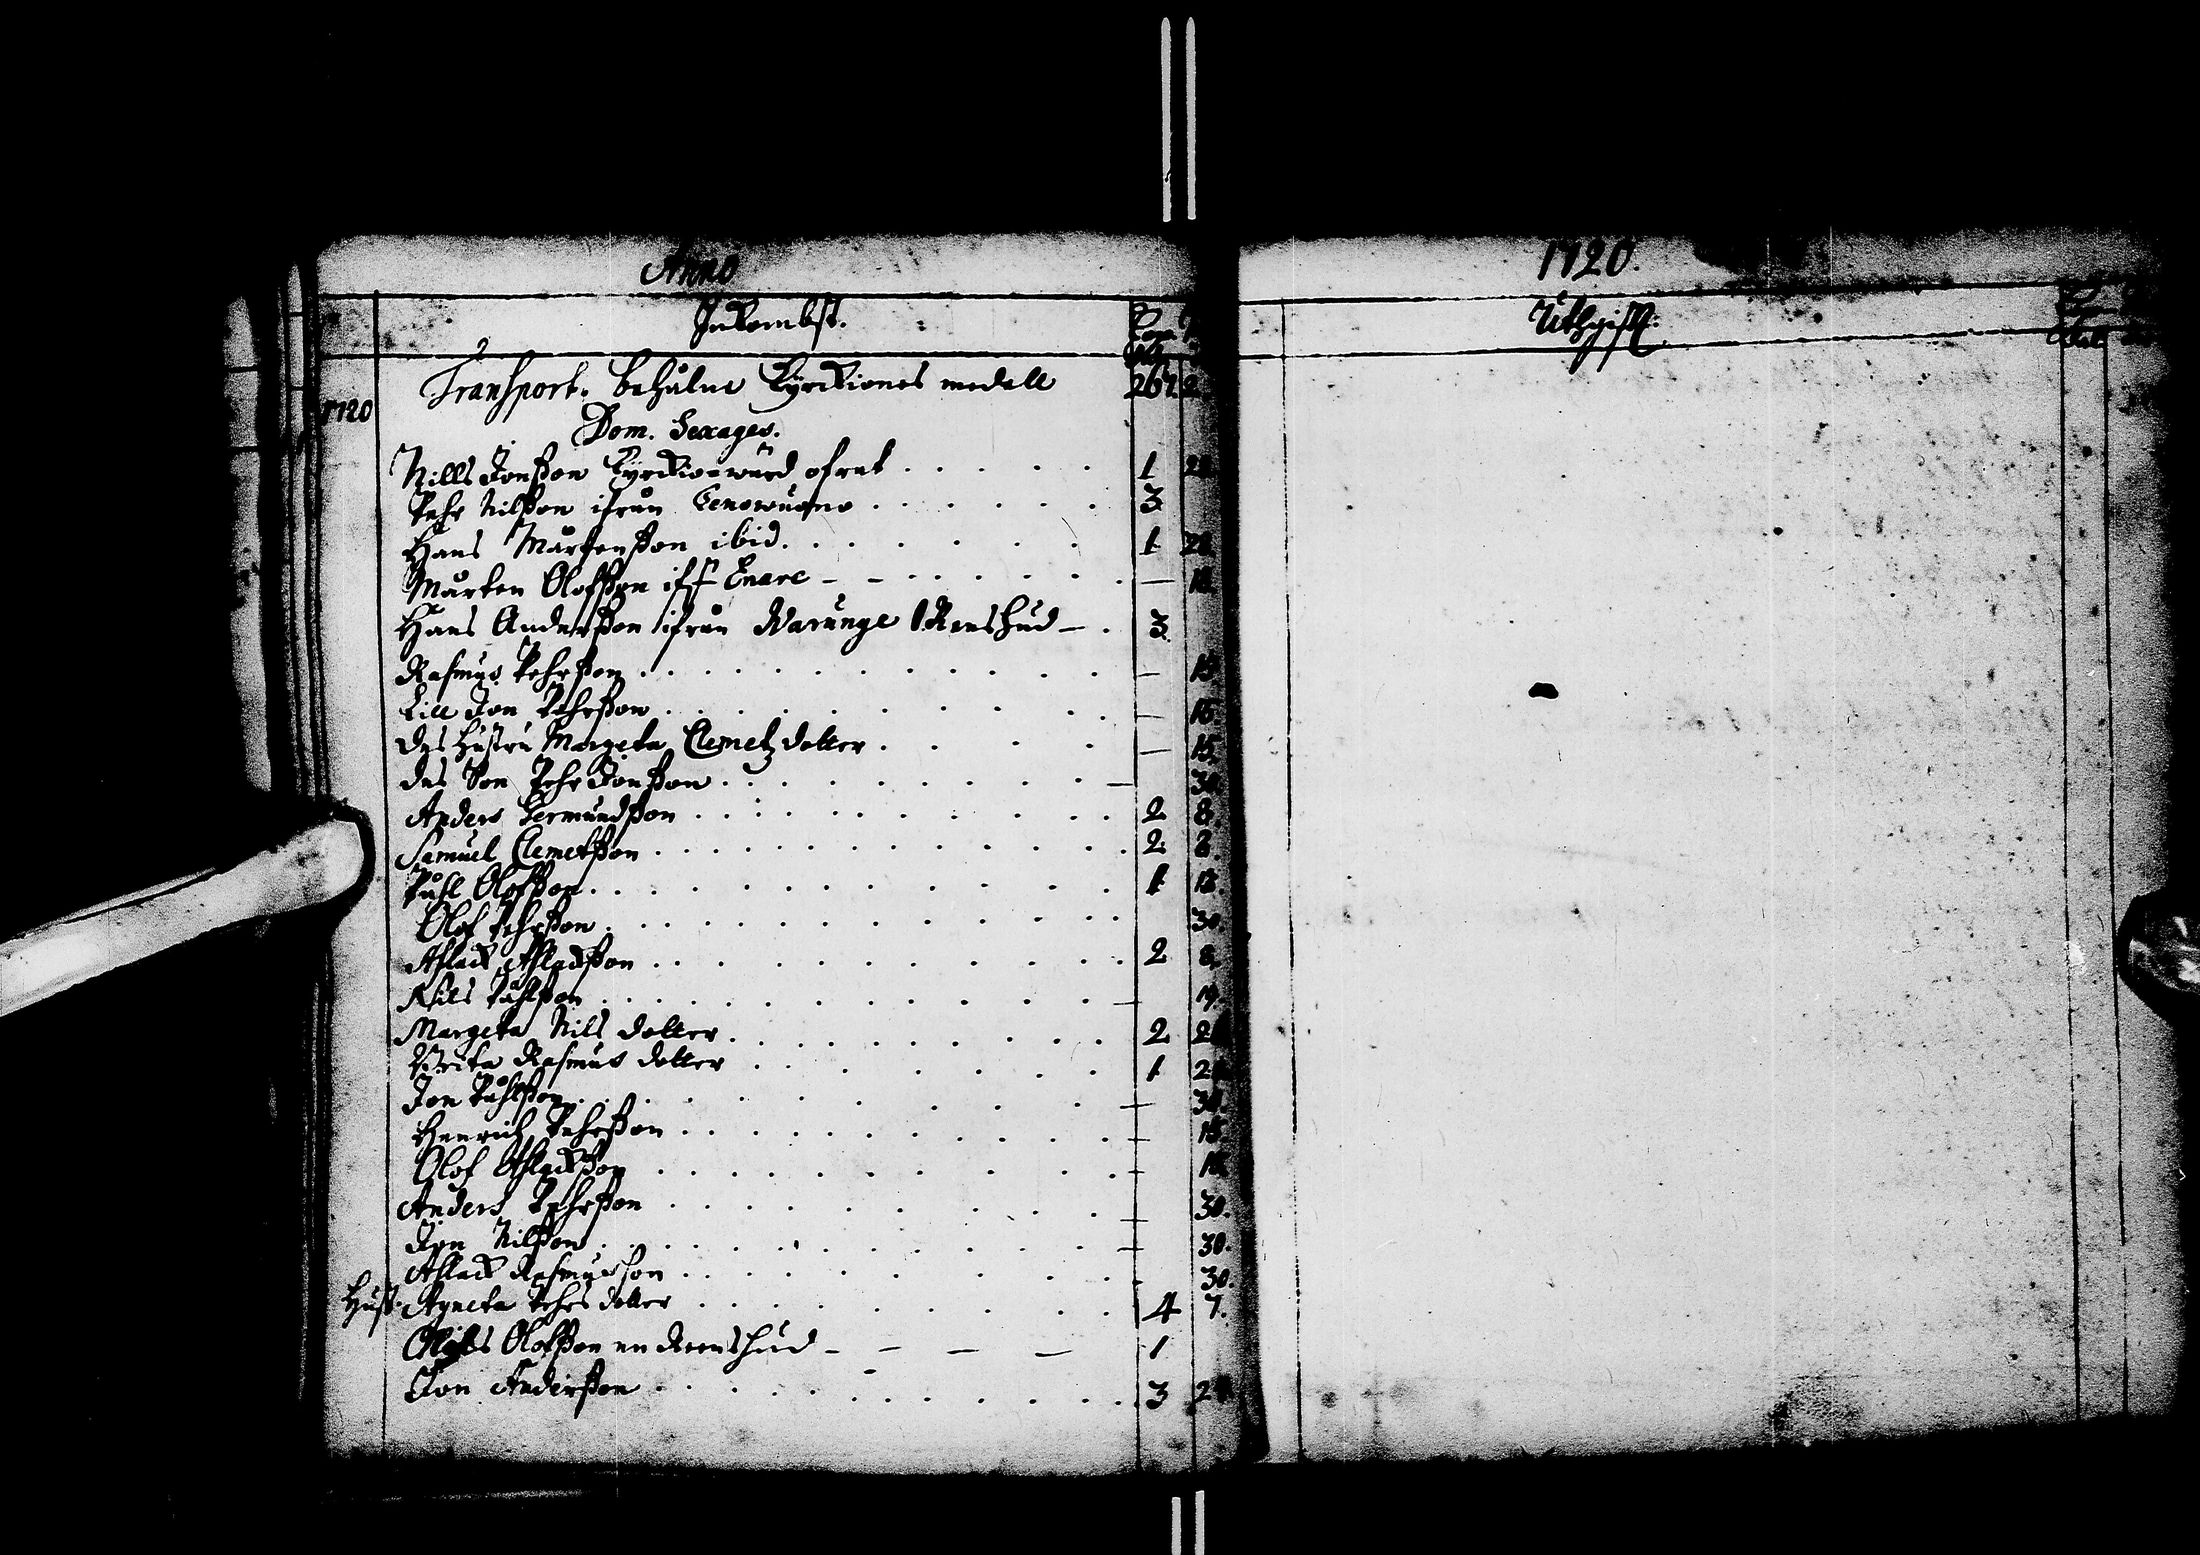 Anno
Inkombst.
1720 Transport. behålne Kyrckiones medell 267. 2
Dom. Sexages.
Nills Jonßon Kyrckio-wärd ofrat . . . . . 1
Pehr Nilßon ifrån . . . . . . 3
Hans Mårtenßon ibid. . . . . . . 1
Mårten Olofßon if Enare - - . . . . . . —
Hans Anderßon ifrån Warunge 1 Renshud - . 3.
Rasmus Pehrßon . . . . . . . . . — 15.
Lill Jon Pehrßon . . . . . . . . — 16.
Des Hustru Margeta Clemetz dotter . . . . . — 15.
Des Son Pehr Jonßon . . . . . . . . — 30.
Anders Germundßon . . . . . . . . . 2 8.
Samuel Clemetßon . . . . . . . . . . 2. 8.
Påhl Olofßon . . . . . . . . . . 1
Olof Pehrßon . . . . . . . . . . 30.
Aslack Aslackßon . . . . . . . . . . 2 8.
Nils Påhlßon . . . . . . . . . . — 19.
Margeta Nils dotter . . . . . . . . . 2
Brita Rasmus dotter . . . . . . . 1
Jon Påhlßon . . . . . . . . . . — 30.
Henrich Pehrßon . . . . . . . . . — 15.
Olof Aslackßon . . . . . . . . . —
Anders Pehrßon . . . . . . . . . — 30.
Jon Nilßon . . . . . . . . . . — 30.
Aslack Rasmusson . . . . . . . . . 30.
Hust. Agneta Pehrs dotter . . . . . . . . . 4 7.
Nils Olofßon en Reenshud - - - — 1
Jon Anderßon . . . . . . . . . . 3
1720.
Uthgifft.